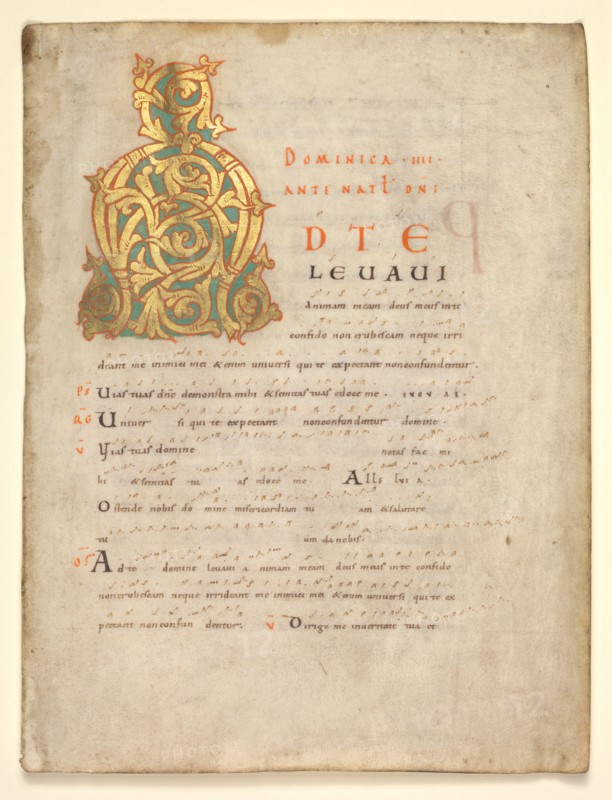 DOMINICA · IIII ·
ANTE NATƚ DNI
A D TE
LEUAUI
Animam meam deus meus inte
confido non erubescam neque irri
deant me inimici mei & enim uniuersi qui te expectant nonconfundentur.
ps Uias tuas dñe demonstra mihi & semitas tuas edoce me. EVOVAE.
RG Uniuer si qui te expectant nonconfundentur domine.
V Vias tuas domine notas fac mi
hi & semitas tu as edoce me. Alle lui a.
Ostende nobis do mine misericordiam tu am & salutare
tu um da nobis.
OF Ad te domine leuaui a nimam meam deus meus inte confido
nonerubescam neque irrideant me inimici mei & enim uniuersi qui te ex
pectant nonconfun dentur. V Dirige me inueritate tua et